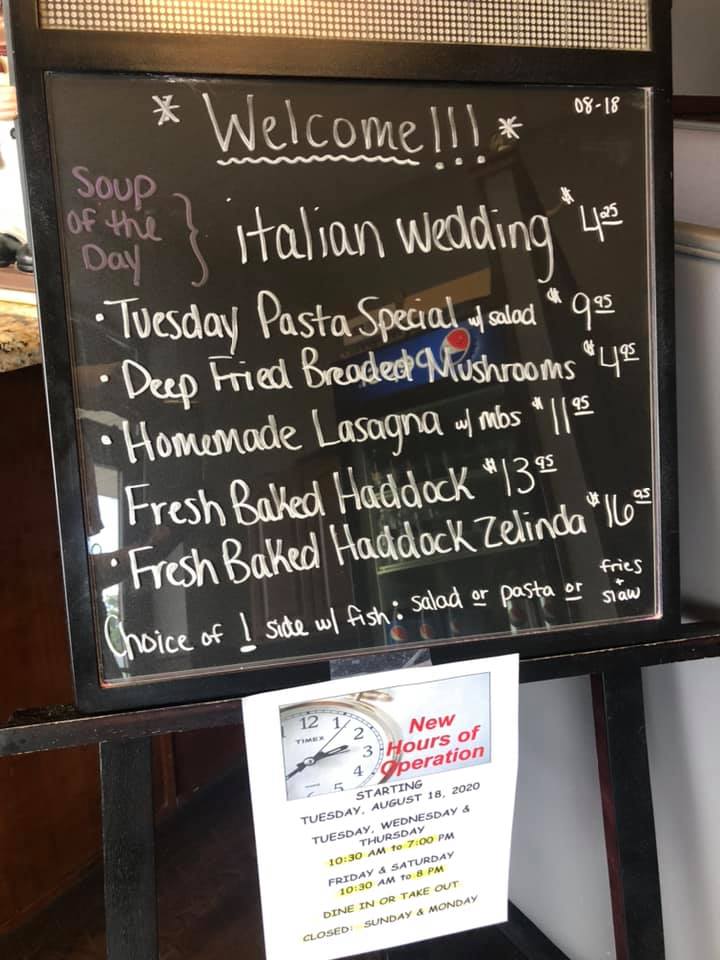 * Welcome!!! *
08-18
Soup
of the
Day
} italian wedding $4.25
• Tuesday Pasta Special w/ salad $9.95
• Deep Fried Breaded Mushrooms $4.95
• Homemade Lasagna w/ mbs $11.95
Fresh Baked Haddock $13.95
• Fresh Baked Haddock Zelinda $16.95
Choice of 1 side w/ fish: salad or pasta or fries + slaw
12 1 2 3 4 5
TIMEX
New
Hours of
Operation
STARTING
TUESDAY, AUGUST 18, 2020
TUESDAY, WEDNESDAY &
THURSDAY
10:30 AM to 7:00 PM
FRIDAY & SATURDAY
10:30 AM to 8 PM
DINE IN OR TAKE OUT
CLOSED: SUNDAY & MONDAY